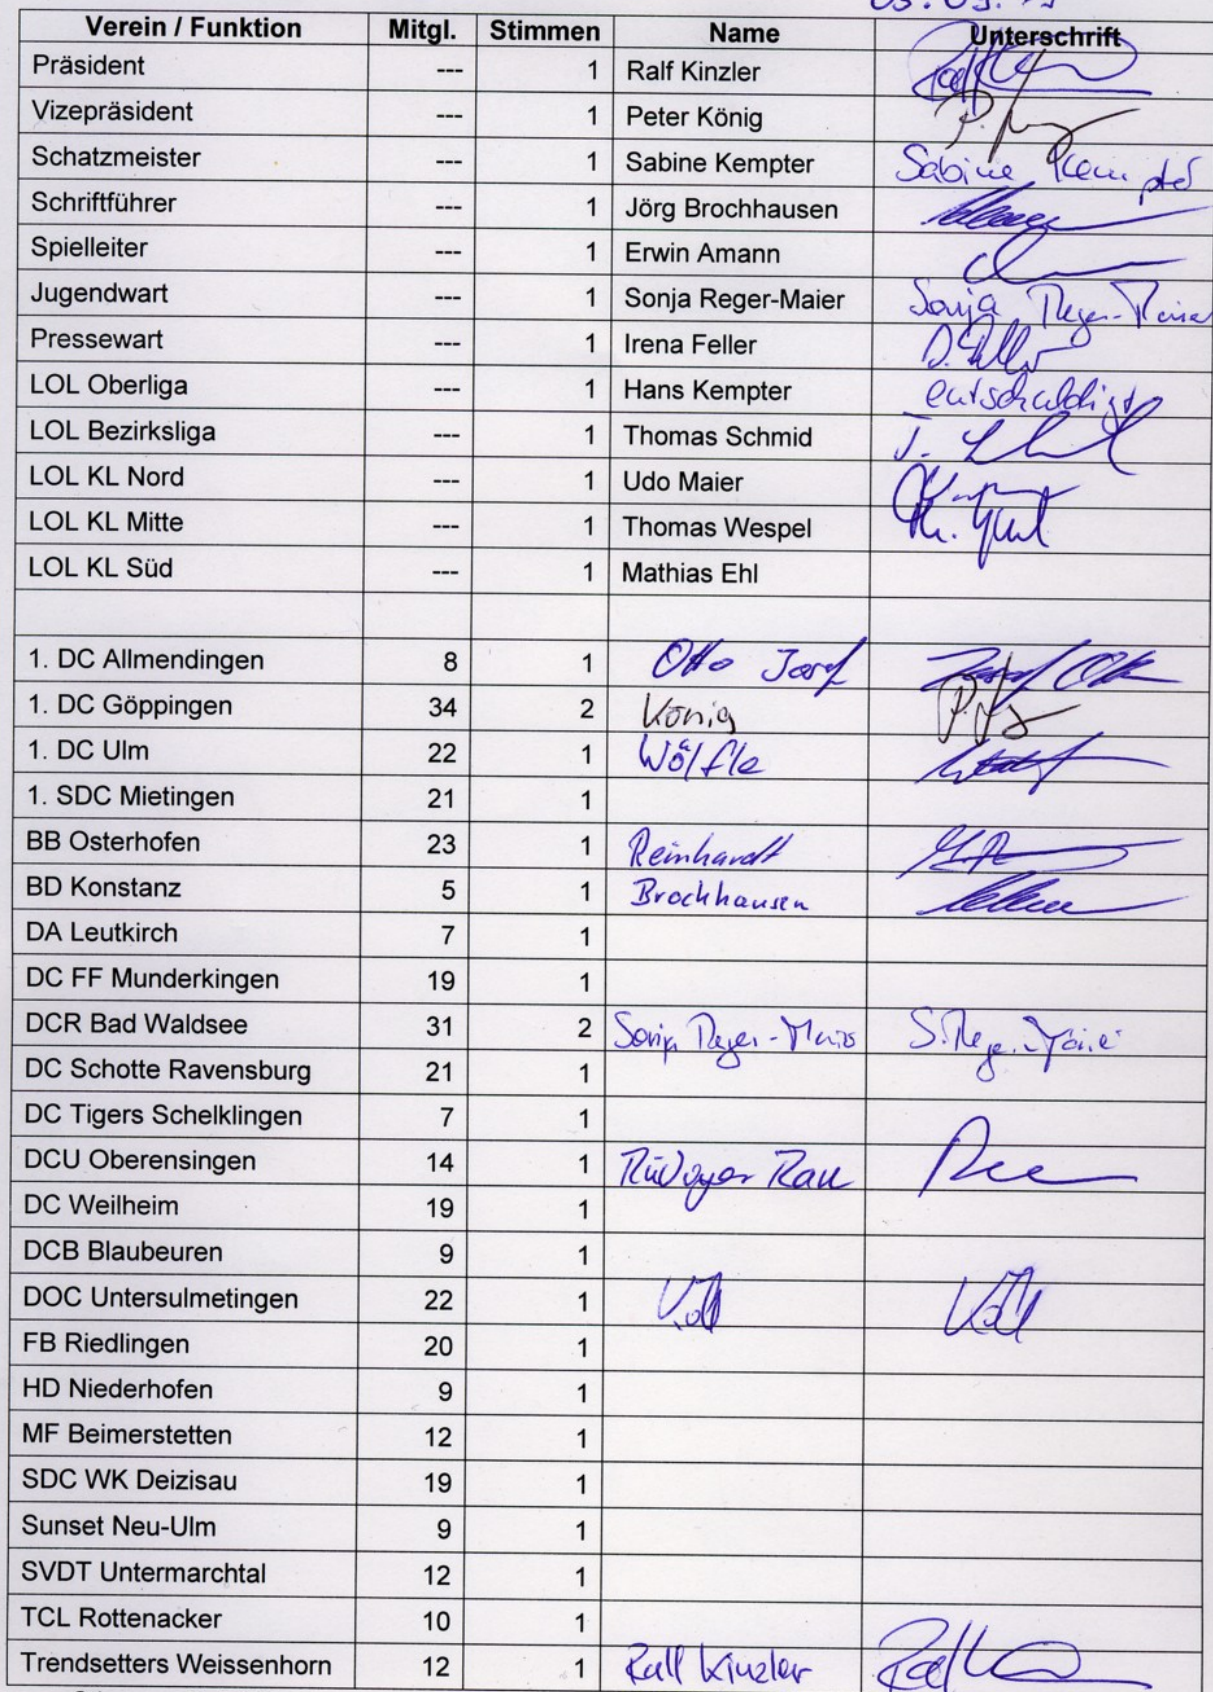 Verein / Funktion Mitgl. Stimmen Name Unterschrift
Präsident --- 1 Ralf Kinzler
Vizepräsident --- 1 Peter König
Schatzmeister --- 1 Sabine Kempter Sabine Kempter
Schriftführer --- 1 Jörg Brochhausen
Spielleiter --- 1 Erwin Amann
Jugendwart --- 1 Sonja Reger-Maier Sonja Reger-Maier
Pressewart --- 1 Irena Feller
LOL Oberliga --- 1 Hans Kempter entschuldigt
LOL Bezirksliga --- 1 Thomas Schmid
LOL KL Nord --- 1 Udo Maier
LOL KL Mitte --- 1 Thomas Wespel
LOL KL Süd --- 1 Mathias Ehl
1. DC Allmendingen 8 1 Otto Josef Josef Otto
1. DC Göppingen 34 2 König
1. DC Ulm 22 1 Wölfle
1. SDC Mietingen 21 1
BB Osterhofen 23 1 Reinhardt
BD Konstanz 5 1 Brochhausen
DA Leutkirch 7 1
DC FF Munderkingen 19 1
DCR Bad Waldsee 31 2 Sonja Reger-Maier S. Reger-Maier
DC Schotte Ravensburg 21 1
DC Tigers Schelklingen 7 1
DCU Oberensingen 14 1 Rüdiger Rau
DC Weilheim 19 1
DCB Blaubeuren 9 1
DOC Untersulmetingen 22 1
FB Riedlingen 20 1
HD Niederhofen 9 1
MF Beimerstetten 12 1
SDC WK Deizisau 19 1
Sunset Neu-Ulm 9 1
SVDT Untermarchtal 12 1
TCL Rottenacker 10 1
Trendsetters Weissenhorn 12 1 Ralf Kinzler